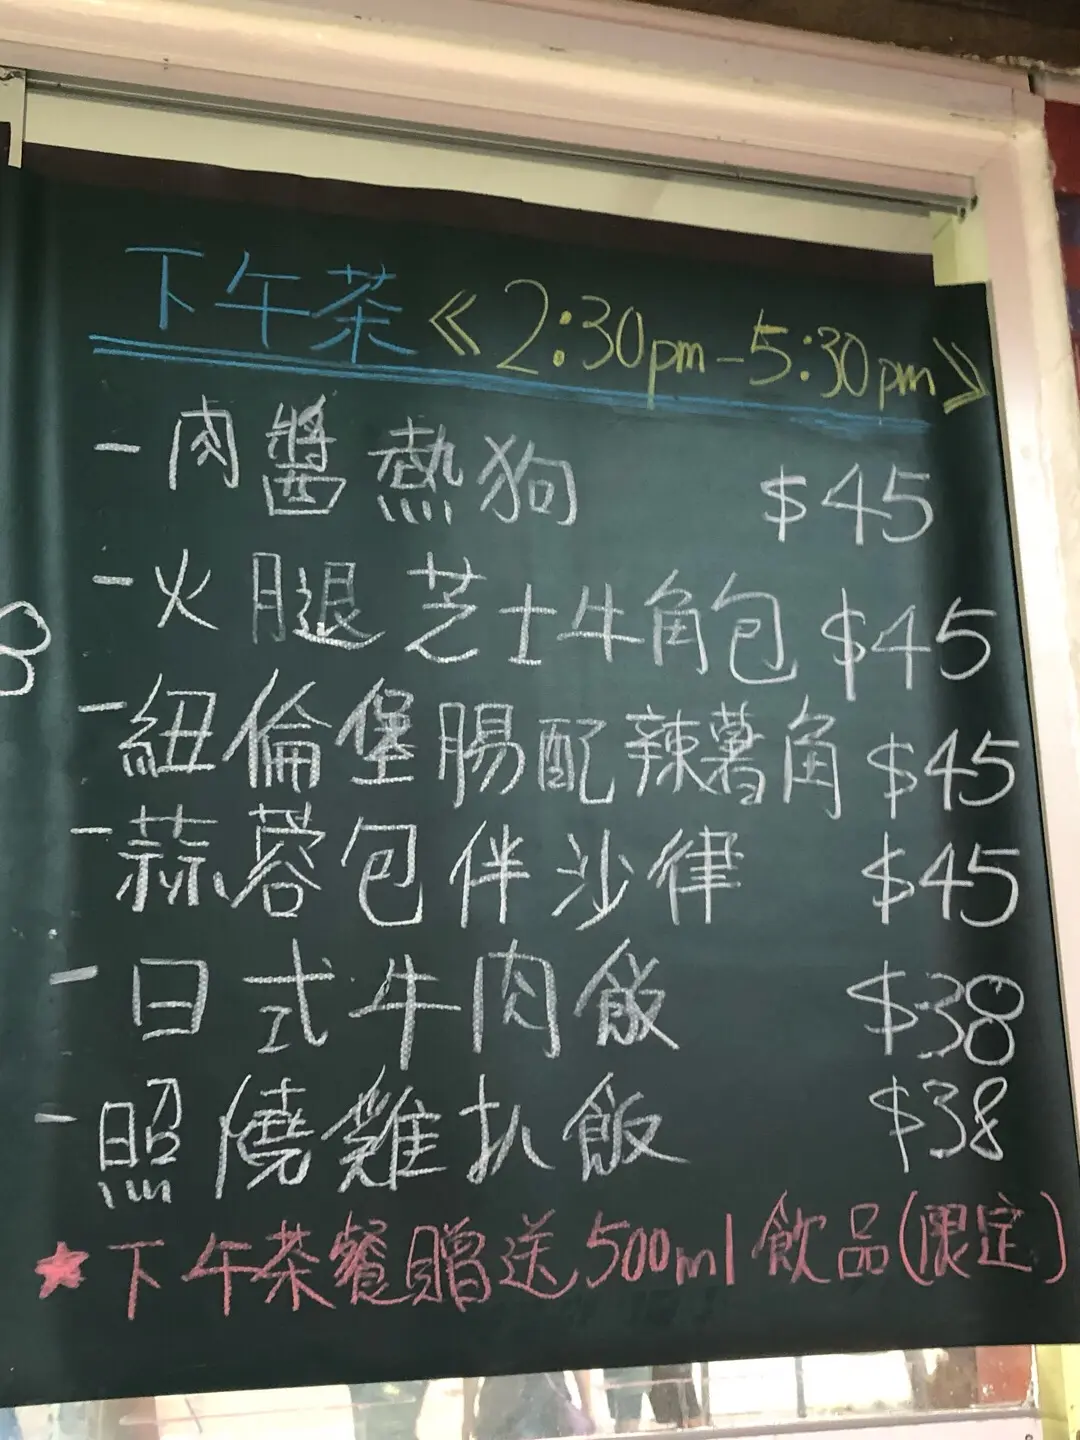 下午茶《2:30pm-5:30pm》
-肉醬熱狗 $45
-火腿芝士牛角包 $45
-紐倫堡腸配辣薯角 $45
-蒜蓉包伴沙律 $45
-日式牛肉飯 $38
-照燒雞扒飯 $38
★下午茶餐贈送500ml飲品(限定)